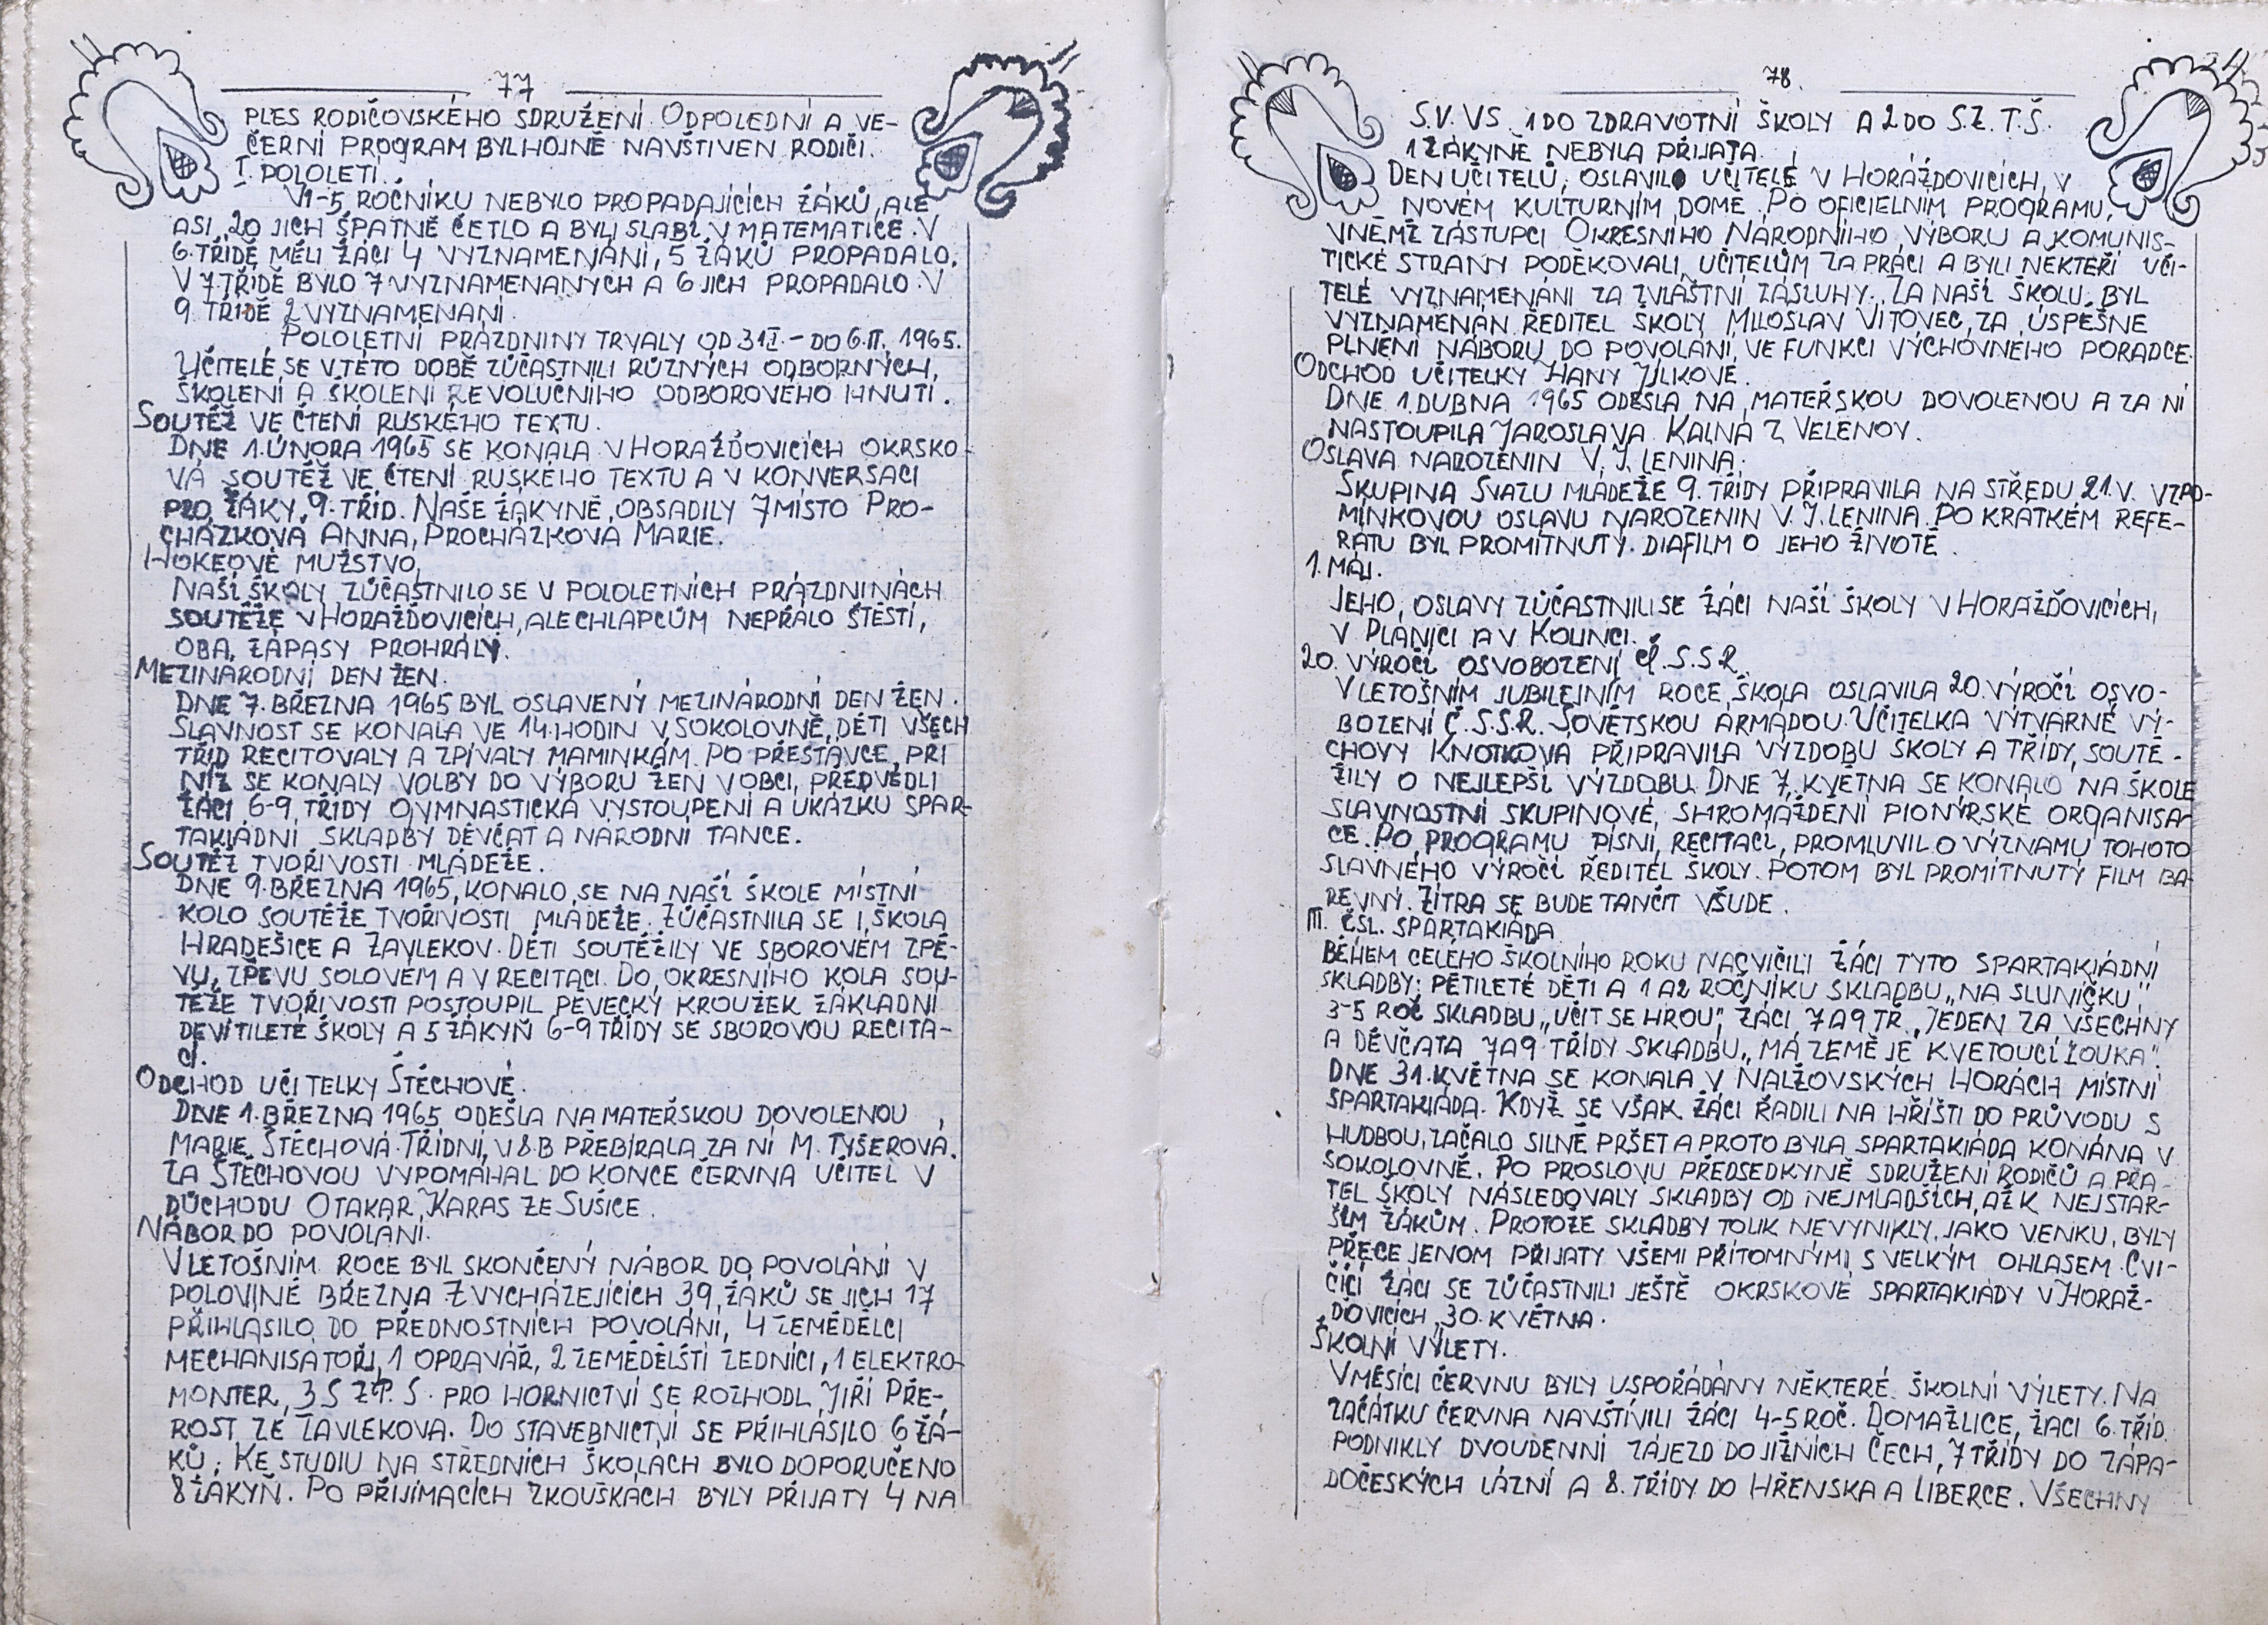 77
PLES RODIČOVSKÉHO SDRUŽENÍ. ODPOLEDNÍ A VE-
ČERNÍ PROGRAM BYL HOJNĚ NAVŠTÍVEN RODIČI.
I. POLOLETÍ.
V 1-5 ROČNÍKU NEBYLO PROPADAJÍCÍCH ŽÁKŮ, ALE
ASI 20 JICH ŠPATNĚ ČETLO A BYLI SLABÍ V MATEMATICE. V
6. TŘÍDĚ MĚLI ŽÁCI 4 VYZNAMENÁNÍ, 5 ŽÁKŮ PROPADALO.
V 7. TŘÍDĚ BYLO 7 VYZNAMENANÝCH A 6 JICH PROPADALO. V
9. TŘÍDĚ 2 VYZNAMENÁNÍ.
POLOLETNÍ PRÁZDNINY TRVALY OD 31.I. - DO 6.II. 1965.
UČITELÉ SE V TÉTO DOBĚ ZÚČASTNILI RŮZNÝCH ODBORNÝCH,
ŠKOLENÍ A ŠKOLENÍ REVOLUČNÍHO ODBOROVÉHO HNUTÍ.
SOUTĚŽ VE ČTENÍ RUSKÉHO TEXTU.
DNE 1. ÚNORA 1965 SE KONALA V HORAŽĎOVICÍCH OKRSKO-
VÁ SOUTĚŽ VE ČTENÍ RUSKÉHO TEXTU A V KONVERSACI
PRO ŽÁKY 9. TŘÍD. NAŠE ŽÁKYNĚ OBSADILY 7 MÍSTO PRO-
CHÁZKOVÁ ANNA, PROCHÁZKOVÁ MARIE.
HOKEOVÉ MUŽSTVO,
NAŠÍ ŠKOLY ZÚČASTNILO SE V POLOLETNÍCH PRÁZDNINÁCH
SOUTĚŽE V HORAŽĎOVICÍCH, ALE CHLAPCŮM NEPŘÁLO ŠTĚSTÍ,
OBA ZÁPASY PROHRÁLY.
MEZINÁRODNÍ DEN ŽEN.
DNE 7. BŘEZNA 1965 BYL OSLAVENÝ MEZINÁRODNÍ DEN ŽEN.
SLAVNOST SE KONALA VE 14. HODIN V SOKOLOVNĚ, DĚTI VŠECH
TŘÍD RECITOVALY A ZPÍVALY MAMINKÁM. PO PŘESTÁVCE, PŘI
NÍŽ SE KONALY VOLBY DO VÝBORU ŽEN V OBCI, PŘEDVEDLI
ŽÁCI 6-9. TŘÍDY GYMNASTICKÁ VYSTOUPENÍ A UKÁZKU SPAR-
TAKIÁDNÍ SKLADBY DĚVČAT A NÁRODNÍ TANCE.
SOUTĚŽ TVOŘIVOSTI MLÁDEŽE.
DNE 9. BŘEZNA 1965, KONALO SE NA NAŠÍ ŠKOLE MÍSTNÍ
KOLO SOUTĚŽE TVOŘIVOSTI MLÁDEŽE. ZÚČASTNILA SE I ŠKOLA
HRADEŠICE A ZAVLEKOV. DĚTI SOUTĚŽILY VE SBOROVÉM ZPĚ-
VU, ZPĚVU SOLOVÉM A V RECITACI. DO OKRESNÍHO KOLA SOU-
TĚŽE TVOŘIVOSTI POSTOUPIL PĚVECKÝ KROUŽEK ZÁKLADNÍ
DEVÍTILETÉ ŠKOLY A 5 ŽÁKYŇ 6-9 TŘÍDY SE SBOROVOU RECITA-
CÍ.
ODCHOD UČITELKY ŠTĚCHOVÉ.
DNE 1. BŘEZNA 1965 ODEŠLA NA MATEŘSKOU DOVOLENOU,
MARIE ŠTĚCHOVÁ. TŘÍDNÍ V 8.B PŘEBÍRALA ZA NÍ M. TYŠEROVÁ.
ZA ŠTĚCHOVOU VYPOMÁHAL DO KONCE ČERVNA UČITEL V
DŮCHODU OTAKAR KARAS ZE SUŠICE.
NÁBOR DO POVOLÁNÍ.
V LETOŠNÍM ROCE BYL SKONČENÝ NÁBOR DO POVOLÁNÍ V
POLOVINĚ BŘEZNA Z VYCHÁZEJÍCÍCH 39 ŽÁKŮ SE JICH 17
PŘIHLÁSILO DO PŘEDNOSTNÍCH POVOLÁNÍ, 4 ZEMĚDĚLCI
MECHANISÁTOŘI, 1 OPRAVÁŘ, 2 ZEMĚDĚLŠTÍ ZEDNÍCI, 1 ELEKTRO-
MONTER, 3 S Z.P.S. PRO HORNICTVÍ SE ROZHODL JIŘÍ PŘE-
ROST ZE ZAVLEKOVA. DO STAVEBNICTVÍ SE PŘIHLÁSILO 6 ŽÁ-
KŮ. KE STUDIU NA STŘEDNÍCH ŠKOLÁCH BYLO DOPORUČENO
8 ŽÁKYŇ. PO PŘIJÍMACÍCH ZKOUŠKÁCH BYLY PŘIJATY 4 NA
78.
S.V.VS. 1 DO ZDRAVOTNÍ ŠKOLY A 2 DO S.Z.T.Š.
1 ŽÁKYNĚ NEBYLA PŘIJATA.
DEN UČITELŮ, OSLAVILO UČITELÉ V HORÁŽDOVICÍCH, V
NOVÉM KULTURNÍM DOMĚ. PO OFICIELNÍM PROGRAMU,
V NĚMŽ ZÁSTUPCI OKRESNÍHO NÁRODNÍHO VÝBORU A KOMUNIS-
TICKÉ STRANY PODĚKOVALI UČITELŮM ZA PRÁCI A BYLI NĚKTEŘÍ UČI-
TELÉ VYZNAMENÁNI ZA ZVLÁŠTNÍ ZÁSLUHY. ZA NAŠÍ ŠKOLU BYL
VYZNAMENÁN ŘEDITEL ŠKOLY MILOSLAV VÍTOVEC, ZA ÚSPĚŠNÉ
PLNĚNÍ NÁBORU DO POVOLÁNÍ, VE FUNKCI VÝCHOVNÉHO PORADCE.
ODCHOD UČITELKY HANY JÍLKOVÉ.
DNE 1. DUBNA 1965 ODEŠLA NA MATEŘSKOU DOVOLENOU A ZA NÍ
NASTOUPILA JAROSLAVA KALNÁ Z VELENOV.
OSLAVA NAROZENIN V. J. LENINA.
SKUPINA SVAZU MLÁDEŽE 9. TŘÍDY PŘIPRAVILA NA STŘEDU 21.V. VZPO-
MÍNKOVOU OSLAVU NAROZENIN V.J. LENINA. PO KRÁTKÉM REFE-
RÁTU BYL PROMÍTNUTÝ. DIAFILM O JEHO ŽIVOTĚ.
1. MÁJ.
JEHO, OSLAVY ZÚČASTNILI SE ŽÁCI NAŠÍ ŠKOLY V HORAŽĎOVICÍCH,
V PLÁNICI A V KOLINCI.
20. VÝROČÍ OSVOBOZENÍ Č.S.S.R.
V LETOŠNÍM JUBILEJNÍM ROCE, ŠKOLA OSLAVILA 20. VÝROČÍ OSVO-
BOZENÍ Č.S.S.R. SOVĚTSKOU ARMÁDOU. UČITELKA VÝTVARNÉ VÝ-
CHOVY KNOTKOVÁ PŘIPRAVILA VÝZDOBU ŠKOLY A TŘÍDY, SOUTĚ-
ŽILY O NEJLEPŠÍ VÝZDOBU. DNE 7. KVĚTNA SE KONALO NA ŠKOLE
SLAVNOSTNÍ SKUPINOVÉ, SHROMÁŽDĚNÍ PIONÝRSKÉ ORGANISA-
CE. PO PROGRAMU PÍSNÍ, RECITACÍ, PROMLUVIL O VÝZNAMU TOHOTO
SLAVNÉHO VÝROČÍ ŘEDITEL ŠKOLY. POTOM BYL PROMÍTNUTÝ FILM BA-
REVNÝ. ZÍTRA SE BUDE TANČIT VŠUDE.
III. ČSL. SPARTAKIÁDA
BĚHEM CELÉHO ŠKOLNÍHO ROKU NACVIČILI ŽÁCI TYTO SPARTAKIÁDNÍ
SKLADBY: PĚTILETÉ DĚTI A 1 A 2 ROČNÍKU SKLADBU „NA SLUNÍČKU,"
3-5 ROČ SKLADBU „UČIT SE HROU", ŽÁCI 7 A 9 TŘ. „JEDEN ZA VŠECHNY
A DĚVČATA 7 A 9 TŘÍDY SKLADBU „MÁ ZEMĚ JE KVETOUCÍ LOUKA".
DNE 31. KVĚTNA SE KONALA V NALŽOVSKÝCH HORÁCH MÍSTNÍ
SPARTAKIÁDA. KDYŽ SE VŠAK ŽÁCI ŘADILI NA HŘIŠTI DO PRŮVODU S
HUDBOU, ZAČALO SILNĚ PRŠET A PROTO BYLA SPARTAKIÁDA KONÁNA V
SOKOLOVNĚ. PO PROSLOVU PŘEDSEDKYNĚ SDRUŽENÍ RODIČŮ A PŘÁ-
TEL ŠKOLY NÁSLEDOVALY SKLADBY OD NEJMLADŠÍCH, AŽ K NEJSTAR-
ŠÍM ŽÁKŮM. PROTOŽE SKLADBY TOLIK NEVYNIKLY, JAKO VENKU, BYLY
PŘECE JENOM PŘIJATY VŠEMI PŘÍTOMNÝMI S VELKÝM OHLASEM. CVI-
ČÍCÍ ŽÁCI SE ZÚČASTNILI JEŠTĚ OKRSKOVÉ SPARTAKIÁDY V HORAŽ-
ĎOVICÍCH, 30. KVĚTNA.
ŠKOLNÍ VÝLETY.
V MĚSÍCI ČERVNU BYLY USPOŘÁDÁNY NĚKTERÉ ŠKOLNÍ VÝLETY. NA
ZAČÁTKU ČERVNA NAVŠTÍVILI ŽÁCI 4-5 ROČ. DOMAŽLICE, ŽÁCI 6. TŘÍD.
PODNIKLY DVOUDENNÍ ZÁJEZD DO JIŽNÍCH ČECH, 7 TŘÍDY DO ZÁPA-
DOČESKÝCH LÁZNÍ A 8. TŘÍDY DO HŘENSKA A LIBERCE. VŠECHNY